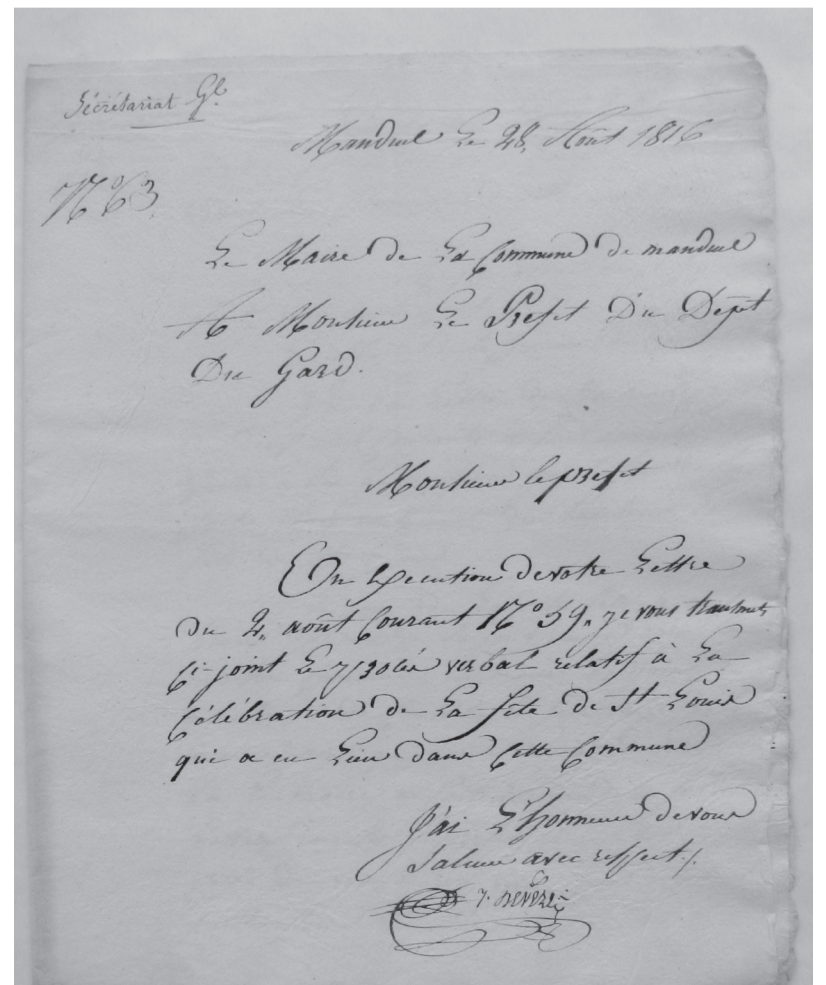 Sécrétariat Gl.
Manduel Le 28, Août 1816
N° 63.
Le Maire de La Commune de manduel
A Monsieur Le Préfet Du Dépt
Du Gard.
Monsieur le préfet
En Execution de votre Lettre
du 2, août Courant N° 59, je vous transmets
Ci-joint Le procés verbal relatif à La
Célébration de La fête de St Louis
qui a eu Lieu dans Cette Commune
J'ai L'honneur de vous
Saluer avec respect ./.